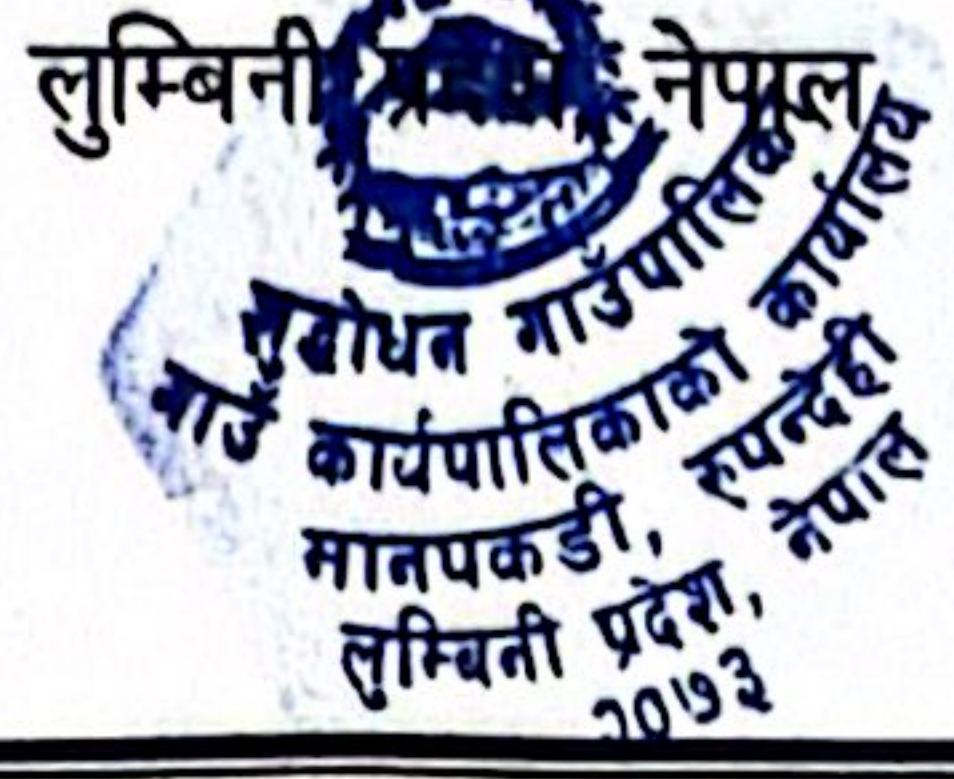 लुम्बिनी प्रदेश नेपाल
सुद्धोधन गाउँपालिका
गाउँ कार्यपालिकाको कार्यालय
मानपकडी, रुपन्देही
लुम्बिनी प्रदेश, नेपाल
२०७३